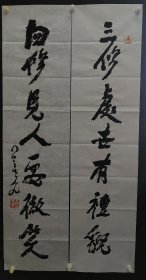 三修處世有禮貌
四修見人要微笑